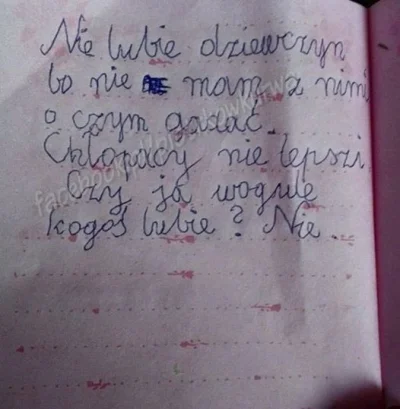 Nie lubie dziewczyn
bo nie mam z nimi
o czym gadać.
Chłopacy nie lepszi
Czy ja wogule
kogoś lubie? Nie.